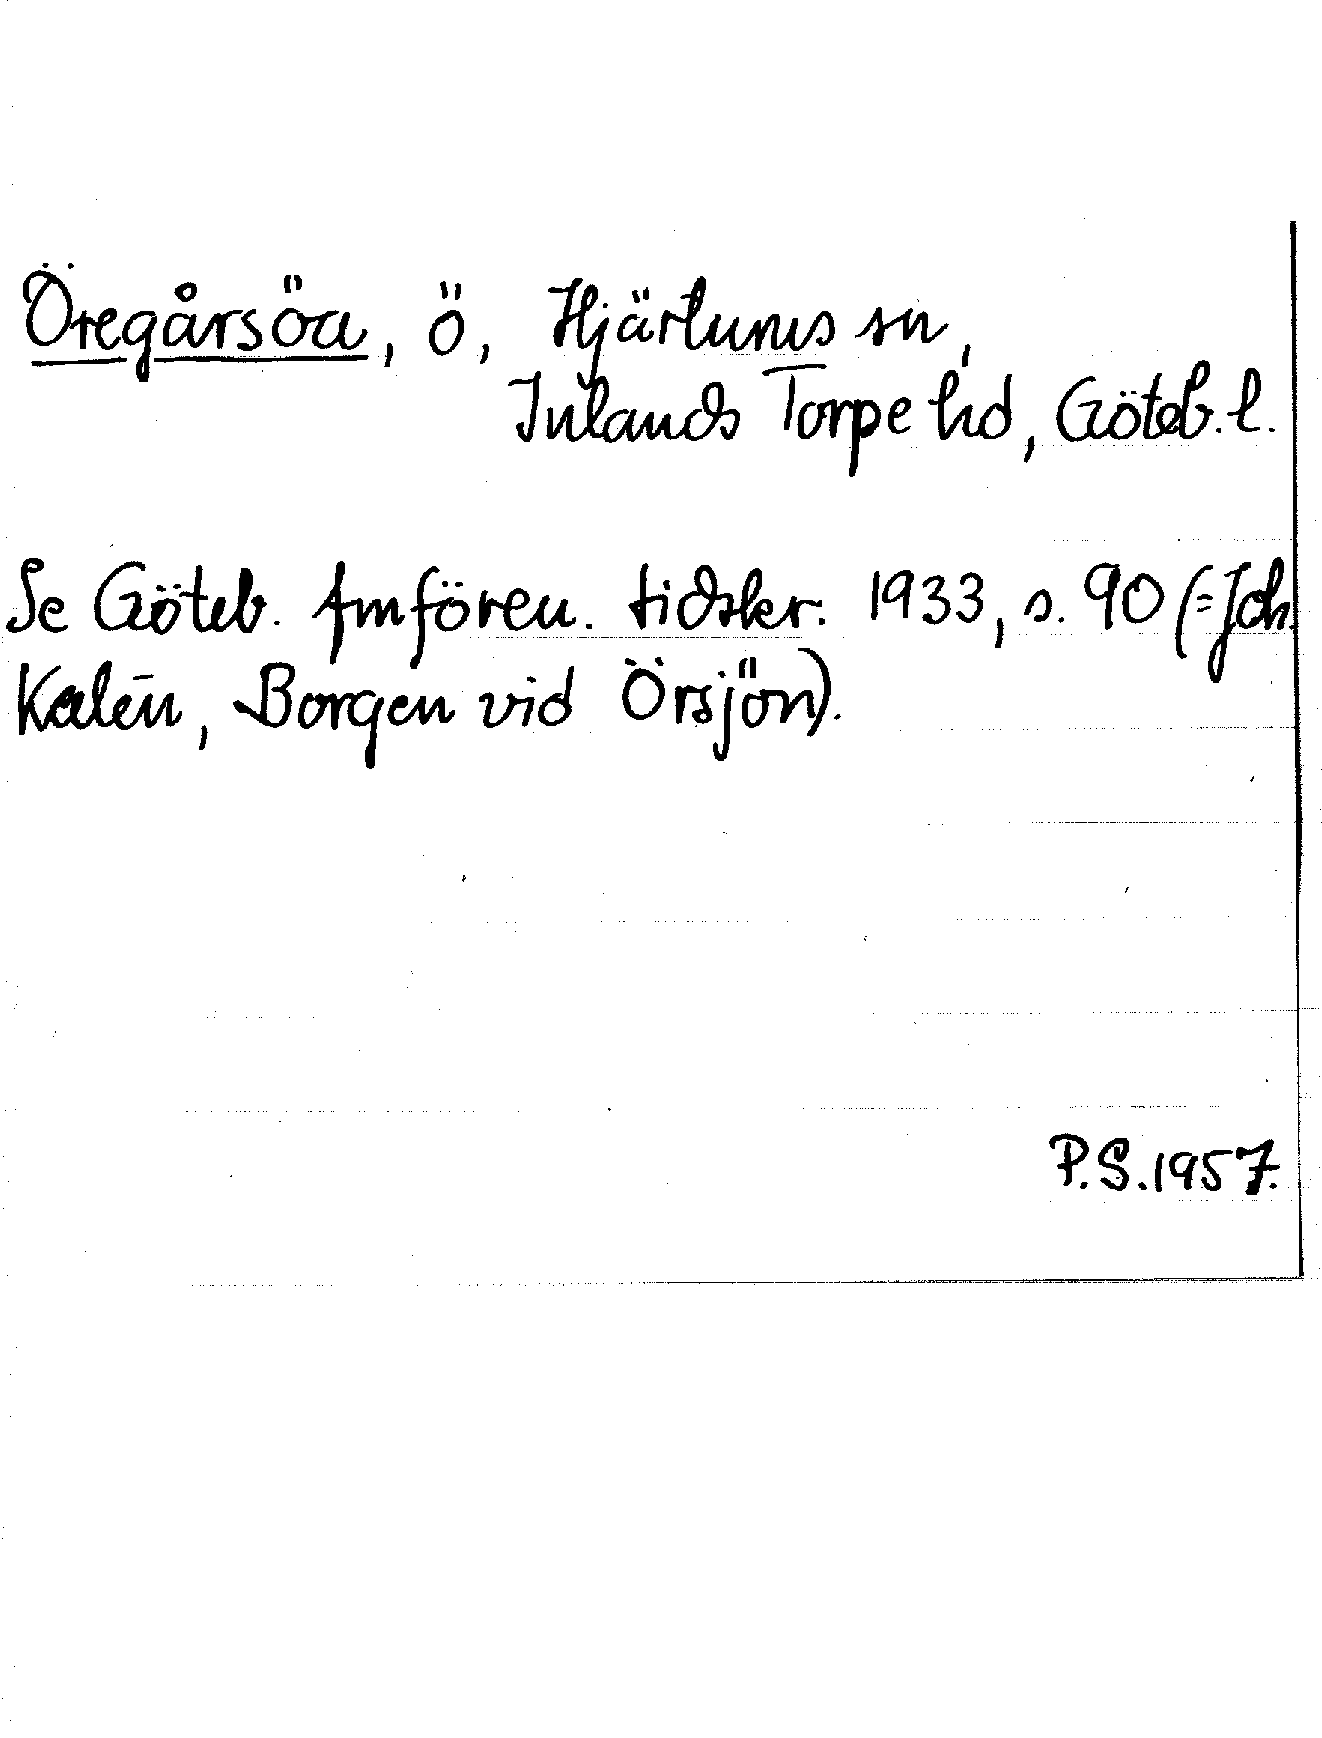 Öregårsöa, ö, Hjärtums sn,
Inlands Torpe hd, Göteb. l.
Se Göteb. fmfören. tidskr. 1933, s. 90 (= Joh.
Kalén, Borgen vid Örsjön).
P.S. 1957.